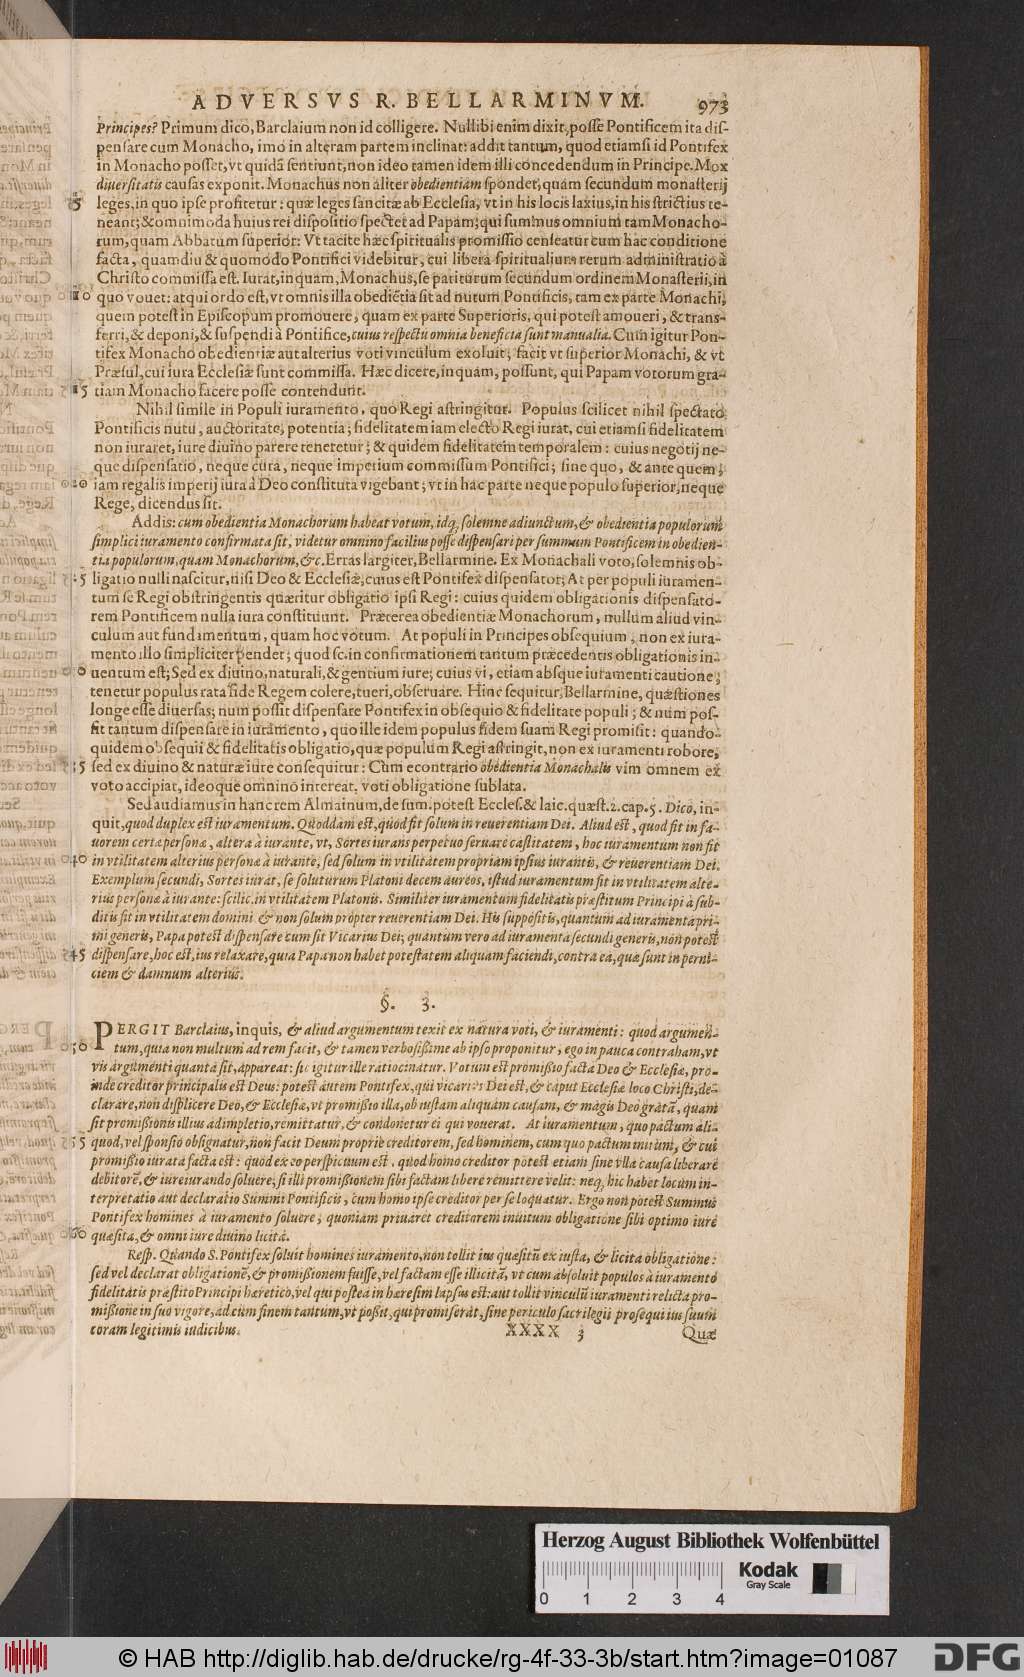 ADVERSVS R. BELLARMINVM. 973
Principes? Primum dico, Barclaium non id colligere. Nullibi enim dixit, posse Pontificem ita dis-
pensare cum Monacho, imò in alteram partem inclinat: addit tantum, quod etiamsi id Pontifex
in Monacho posset, vt quidã sentiunt, non ideo tamen idem illi concedendum in Principe. Mox
diuersitatis causas exponit. Monachus non aliter obedientiam spondet, quàm secundum monasterij
5 leges, in quo ipse profitetur: quæ leges sancitæ ab Ecclesia, vt in his locis laxius, in his strictius te-
neant; & omnimoda huius rei dispositio spectet ad Papam; qui summus omnium tam Monacho-
rum, quam Abbatum superior: Vt tacitè hæc spiritualis promissio censeatur cum hac conditione
facta, quamdiu & quomodo Pontifici videbitur, cui libera spiritualium rerum administratio à
Christo commissa est. Iurat, inquam, Monachus, se pariturum secundum ordinem Monasterii, in
10 quo vouet: atqui ordo est, vt omnis illa obediẽtia sit ad nutum Pontificis, tam ex parte Monachi,
quem potest in Episcopum promouere, quam ex parte Superioris, qui potest amoueri, & trans-
ferri, & deponi, & suspendi à Pontifice, cuius respectu omnia beneficia sunt manualia. Cum igitur Pon-
tifex Monacho obedientiæ aut alterius voti vinculum exoluit, facit vt superior Monachi, & vt
Præsul, cui iura Ecclesiæ sunt commissa. Hæc dicere, inquam, possunt, qui Papam votorum gra-
15 tiam Monacho facere posse contendunt.
Nihil simile in Populi iuramento, quo Regi astringitur. Populus scilicet nihil spectato
Pontificis nutu, auctoritate, potentia; fidelitatem iam electo Regi iurat, cui etiamsi fidelitatem
non iuraret, iure diuino parere teneretur; & quidem fidelitatem temporalem: cuius negotij ne-
que dispensatio, neque cura, neque imperium commissum Pontifici; sine quo, & ante quem,
20 iam regalis imperij iura à Deo constituta vigebant; vt in hac parte neque populo superior, neque
Rege, dicendus sit.
Addis: cum obedientia Monachorum habeat votum, idq́; solemne adiunctum, & obedientia populorum
simplici iuramento confirmata sit, videtur omnino facilius posse dispensari per summum Pontificem in obedien-
tia populorum, quam Monachorum, &c. Erras largiter, Bellarmine. Ex Monachali voto, solemnis ob-
25 ligatio nulli nascitur, nisi Deo & Ecclesiæ, cuius est Pontifex dispensator; At per populi iuramen-
tum se Regi obstringentis quæritur obligatio ipsi Regi: cuius quidem obligationis dispensato-
rem Pontificem nulla iura constituunt. Præterea obedientiæ Monachorum, nullum aliud vin-
culum aut fundamentum, quam hoc votum. At populi in Principes obsequium, non ex iura-
mento illo simpliciter pendet; quod sc. in confirmationem tantum præcedentis obligationis in-
30 uentum est; Sed ex diuino, naturali, & gentium iure; cuius vi, etiam absque iuramenti cautione,
tenetur populus rata fide Regem colere, tueri, obseruare. Hinc sequitur, Bellarmine, quæstiones
longe esse diuersas; num possit dispensare Pontifex in obsequio & fidelitate populi; & num pos-
sit tantum dispensare in iuramento, quo ille idem populus fidem suam Regi promisit: quando-
quidem obsequii & fidelitatis obligatio, quæ populum Regi astringit, non ex iuramenti robore,
35 sed ex diuino & naturæ iure consequitur: Cùm econtrario obedientia Monachalis vim omnem ex
voto accipiat, ideoque omnino intereat, voti obligatione sublata.
Sed audiamus in hanc rem Almainum, de sum. potest Eccles. & laic. quæst. 2. cap. 5. Dico, in-
quit, quod duplex est iuramentum. Quoddam est, quod fit solum in reuerentiam Dei. Aliud est, quod fit in fa-
uorem certæ personæ, altera à iurante, vt, Sortes iurans perpetuo seruare castitatem, hoc iuramentum non fit
40 in vtilitatem alterius personæ à iurante, sed solum in vtilitatem propriam ipsius iurantis, & reuerentiam Dei.
Exemplum secundi, Sortes iurat, se soluturum Platoni decem aureos, istud iuramentum fit in vtilitatem alte-
rius personæ à iurante: scilic. in vtilitatem Platonis. Similiter iuramentum fidelitatis præstitum Principi à sub-
ditis fit in vtilitatem domini & non solum propter reuerentiam Dei. His suppositis, quantum ad iuramenta pri-
mi generis, Papa potest dispensare cum sit Vicarius Dei; quantum vero ad iuramenta secundi generis, non potest
45 dispensare, hoc est, ius relaxare, quia Papa non habet potestatem aliquam faciendi, contra ea, quæ sunt in perni-
ciem & damnum alterius.
§. 3.
PERGIT Barclaius, inquis, & aliud argumentum texit ex natura voti, & iuramenti: quod argumen-
50 tum, quia non multum ad rem facit, & tamen verbosissime ab ipso proponitur, ego in pauca contraham, vt
vis argumenti quanta sit, appareat: sic igitur ille ratiocinatur. Votum est promissio facta Deo & Ecclesiæ, pro-
inde creditor principalis est Deus: potest autem Pontifex, qui vicarius Dei est, & caput Ecclesiæ loco Christi, de-
clarare, non displicere Deo, & Ecclesiæ, vt promissio illa, ob iustam aliquam causam, & magis Deo gratã, quam
sit promissionis illius adimpletio, remittatur, & condonetur ei qui vouerat. At iuramentum, quo pactum ali-
55 quod, vel sponsio obsignatur, non facit Deum proprie creditorem, sed hominem, cum quo pactum initum, & cui
promissio iurata facta est: quod ex eo perspicuum est, quod homo creditor potest etiam sine vlla causa liberare
debitorẽ, & iureiurando soluere, si illi promissionem sibi factam libere remittere velit: neq́; hic habet locum in-
terpretatio aut declaratio Summi Pontificis, cum homo ipse creditor per se loquatur. Ergo non potest Summus
Pontifex homines à iuramento soluere, quoniam priuaret creditorem inuitum obligatione sibi optimo iure
60 quæsita, & omni iure diuino licitâ.
Resp. Quando S. Pontifex soluit homines iuramento, non tollit ius quæsitũ ex iusta, & licita obligatione:
sed vel declarat obligationẽ, & promissionem fuisse, vel factam esse illicitã, vt cum absoluit populos à iuramento
fidelitatis præstito Principi hæretico, vel qui postea in hæresim lapsus est: aut tollit vinculũ iuramenti relicta pro-
missione in suo vigore, ad eum finem tantum, vt possit, qui promiserat, sine periculo sacrilegii prosequi ius suum
coram legitimis iudicibus. XXXX 3 Quæ
Herzog August Bibliothek Wolfenbüttel
Kodak
Gray Scale
0 1 2 3 4
© HAB http://diglib.hab.de/drucke/rg-4f-33-3b/start.htm?image=01087
DFG